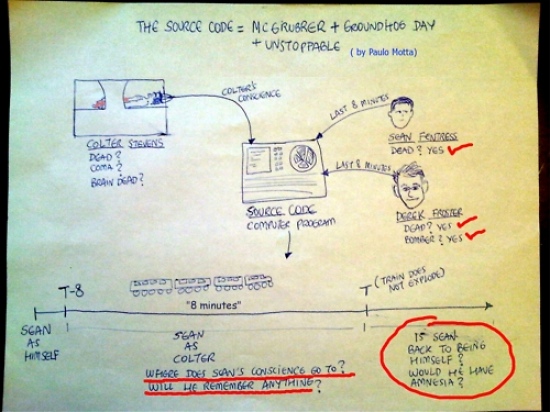 THE SOURCE CODE = MCGRUBRER + GROUNDHOG DAY
+ UNSTOPPABLE
( by Paulo Motta)
COLTER'S
CONSCIENCE
COLTER STEVENS
DEAD?
COMA?
BRAIN DEAD?
LAST 8 MINUTES
SEAN FENTRESS
DEAD? YES
LAST 8 MINUTES
SOURCE CODE
COMPUTER PROGRAM
DEREK FROSTER
DEAD? YES
BOMBER? YES
T-8
"8 minutes"
T (TRAIN DOES
NOT EXPLODE)
SEAN
AS
HIMSELF
SEAN
AS
COLTER
WHERE DOES SEAN'S CONSCIENCE GO TO?
WILL HE REMEMBER ANYTHING?
IS SEAN
BACK TO BEING
HIMSELF?
WOULD HE HAVE
AMNESIA?